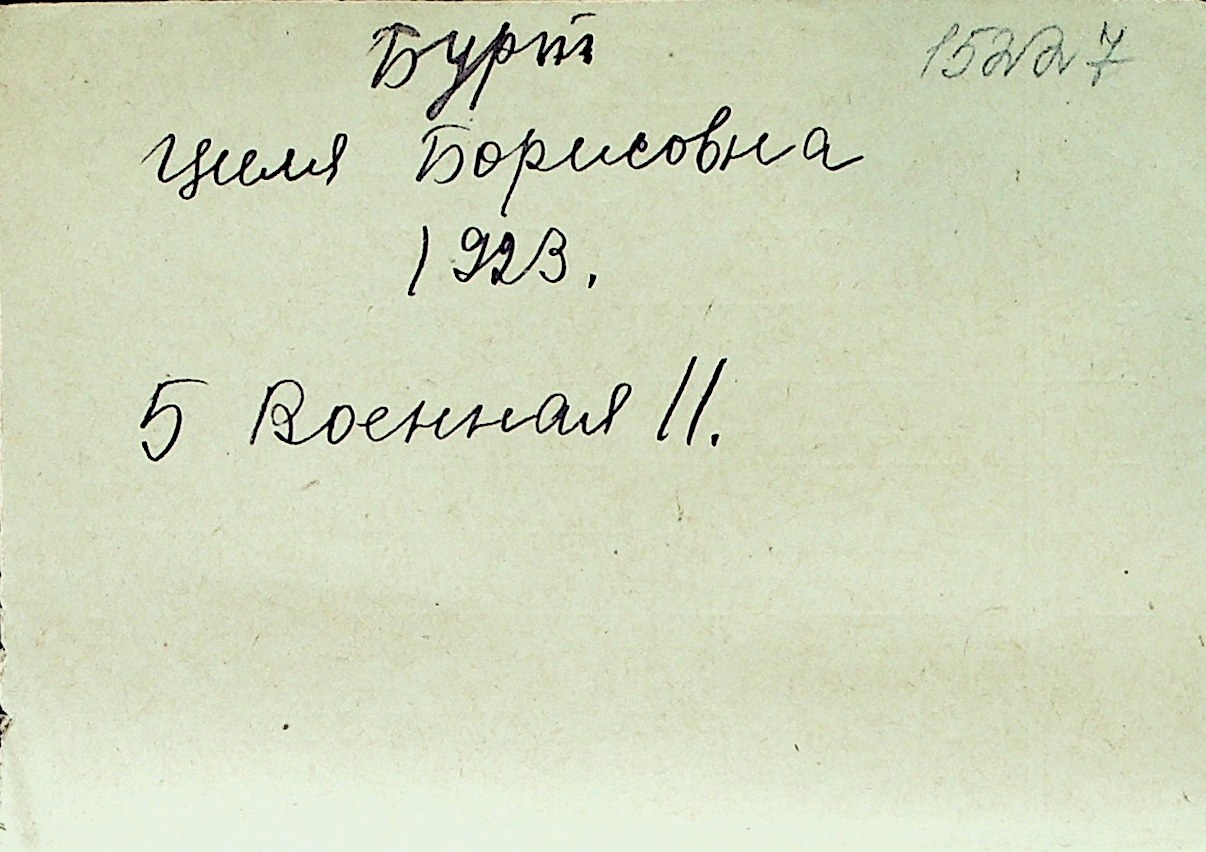 Бурт 15227
Циля Борисовна
1923.
5 Военная 11.